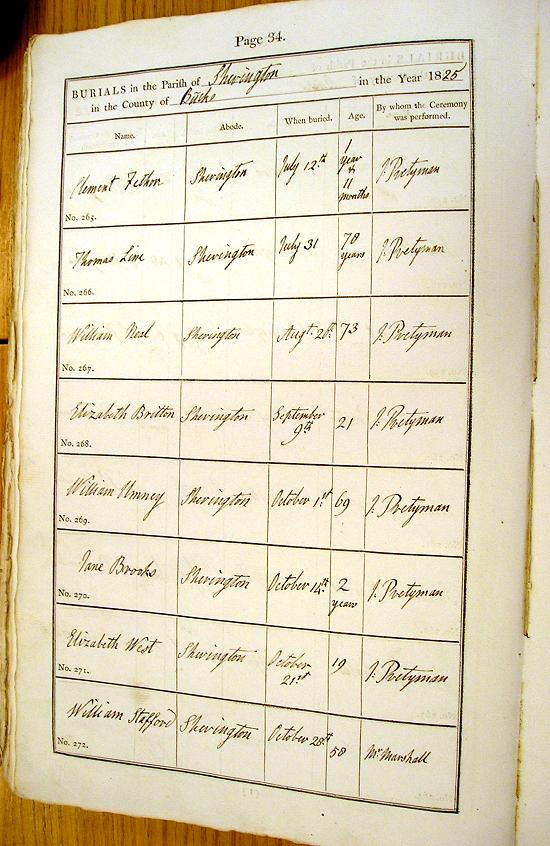 Page 34.
BURIALS in the Parish of Sherington
in the County of Bucks in the Year 1825
Name. Abode. When buried. Age. By whom the Ceremony was performed.
Clement Fethon Sherington July 12th 1 Year & 11 Months J. Pretyman
No. 265.
Thomas Line Sherington July 31 70 years J. Pretyman
No. 266.
William Neal Sherington Augt. 20th. 73 J. Pretyman
No. 267.
Elizabeth Britton Sherington September 9th 21 J. Pretyman
No. 268.
William Umney Sherington October 1st 69 J. Pretyman
No. 269.
Jane Brooks Sherington October 14th 2 years J. Pretyman
No. 270.
Elizabeth West Sherington October 21st 19 J. Pretyman
No. 271.
William Stafford Sherington October 28th 50 Mr Marshall
No. 272.